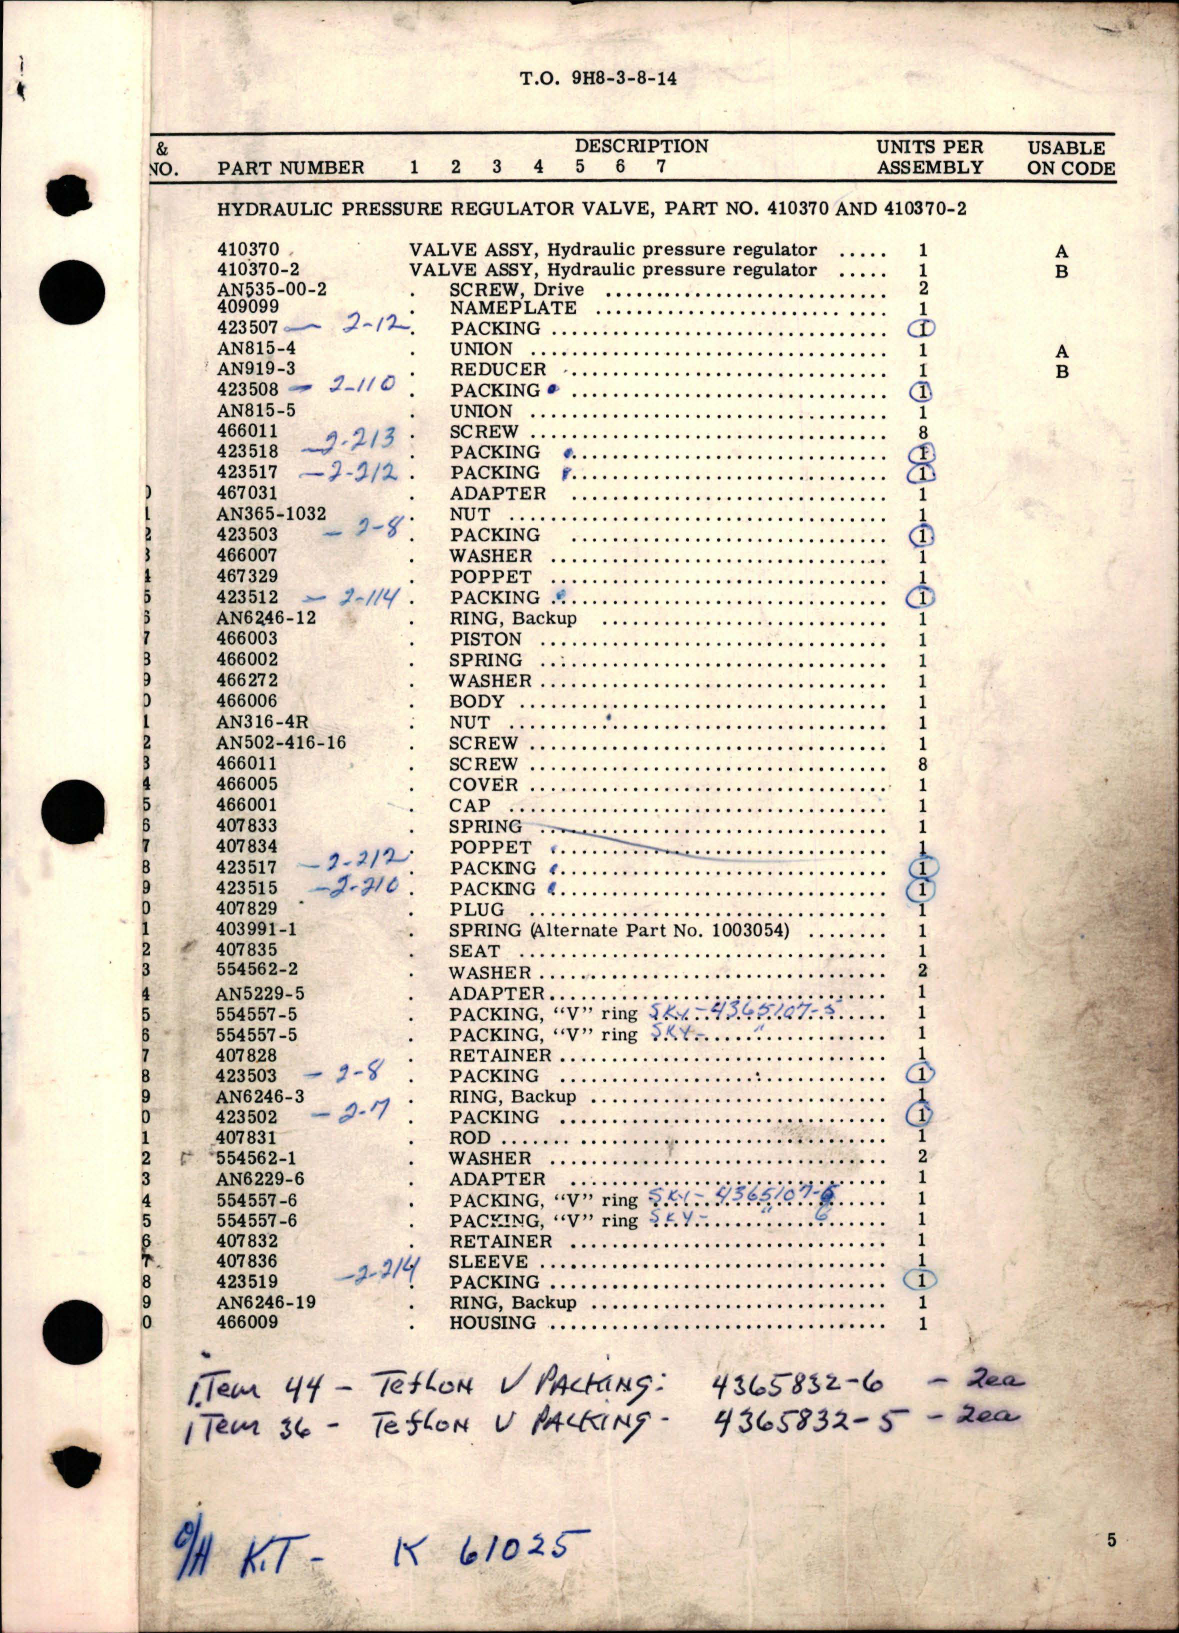 T.O. 9H8-3-8-14
& DESCRIPTION UNITS PER USABLE
NO. PART NUMBER 1 2 3 4 5 6 7 ASSEMBLY ON CODE
HYDRAULIC PRESSURE REGULATOR VALVE, PART NO. 410370 AND 410370-2
410370 VALVE ASSY, Hydraulic pressure regulator ..... 1 A
410370-2 VALVE ASSY, Hydraulic pressure regulator ..... 1 B
AN535-00-2 . SCREW, Drive ..... 2
409099 . NAMEPLATE ..... 1
423507 — 2-12 . PACKING ..... 1
AN815-4 . UNION ..... 1 A
AN919-3 . REDUCER ..... 1 B
423508 — 2-110 . PACKING ..... 1
AN815-5 . UNION ..... 1
466011 . SCREW ..... 8
423518 — 2-213 . PACKING ..... 1
423517 — 2-212 . PACKING ..... 1
0 467031 . ADAPTER ..... 1
1 AN365-1032 . NUT ..... 1
2 423503 — 2-8 . PACKING ..... 1
3 466007 . WASHER ..... 1
4 467329 . POPPET ..... 1
5 423512 — 2-114 . PACKING ..... 1
6 AN6246-12 . RING, Backup ..... 1
7 466003 . PISTON ..... 1
8 466002 . SPRING ..... 1
9 466272 . WASHER ..... 1
0 466006 . BODY ..... 1
1 AN316-4R . NUT ..... 1
2 AN502-416-16 . SCREW ..... 1
3 466011 . SCREW ..... 8
4 466005 . COVER ..... 1
5 466001 . CAP ..... 1
6 407833 . SPRING ..... 1
7 407834 . POPPET ..... 1
8 423517 — 2-212 . PACKING ..... 1
9 423515 — 2-210 . PACKING ..... 1
0 407829 . PLUG ..... 1
1 403991-1 . SPRING (Alternate Part No. 1003054) ..... 1
2 407835 . SEAT ..... 1
3 554562-2 . WASHER ..... 2
4 AN5229-5 . ADAPTER ..... 1
5 554557-5 . PACKING, “V” ring SKY-4365107-5 ..... 1
6 554557-5 . PACKING, “V” ring SKY- " ..... 1
7 407828 . RETAINER ..... 1
8 423503 — 2-8 . PACKING ..... 1
9 AN6246-3 . RING, Backup ..... 1
0 423502 — 2-7 . PACKING ..... 1
1 407831 . ROD ..... 1
2 554562-1 . WASHER ..... 2
3 AN6229-6 . ADAPTER ..... 1
4 554557-6 . PACKING, “V” ring SKY-4365107-6 ..... 1
5 554557-6 . PACKING, “V” ring SKY- " 6 ..... 1
6 407832 . RETAINER ..... 1
7 407836 . SLEEVE ..... 1
8 423519 — 2-214 . PACKING ..... 1
9 AN6246-19 . RING, Backup ..... 1
0 466009 . HOUSING ..... 1
iTem 44 - Teflon V PACKING: 4365832-6 - 2ea
iTem 36 - Teflon V PACKING - 4365832-5 - 2ea
O/H KIT - K 61025
5